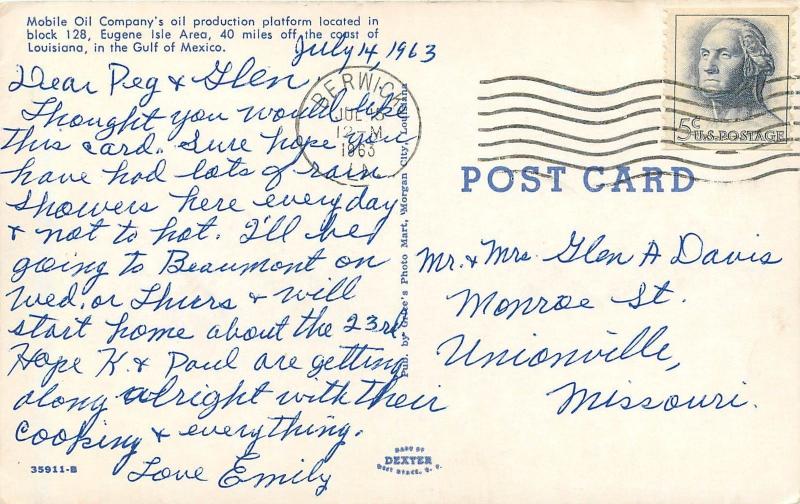 Mobile Oil Company's oil production platform located in
block 128, Eugene Isle Area, 40 miles off the coast of
Louisiana, in the Gulf of Mexico.
July 14, 1963
Dear Peg & Glen,
Thought you would like
this card. Sure hope you
have had lots of rain
showers here everyday
& not to hot. I'll be
going to Beaumont on
Wed. or Thurs & will
start home about the 23rd
Hope K. & Paul are getting
along alright with their
cooking & everything.
Love Emily
35911-B
BERWICK
JUL
12 M
1963
LA
Pub. by Grice's Photo Mart, Morgan City, Louisiana
MADE BY
DEXTER
WEST NYACK, N. Y.
5c
U.S. POSTAGE
POST CARD
Mr. & Mrs. Glen A Davis
Monroe St.
Unionville,
Missouri.